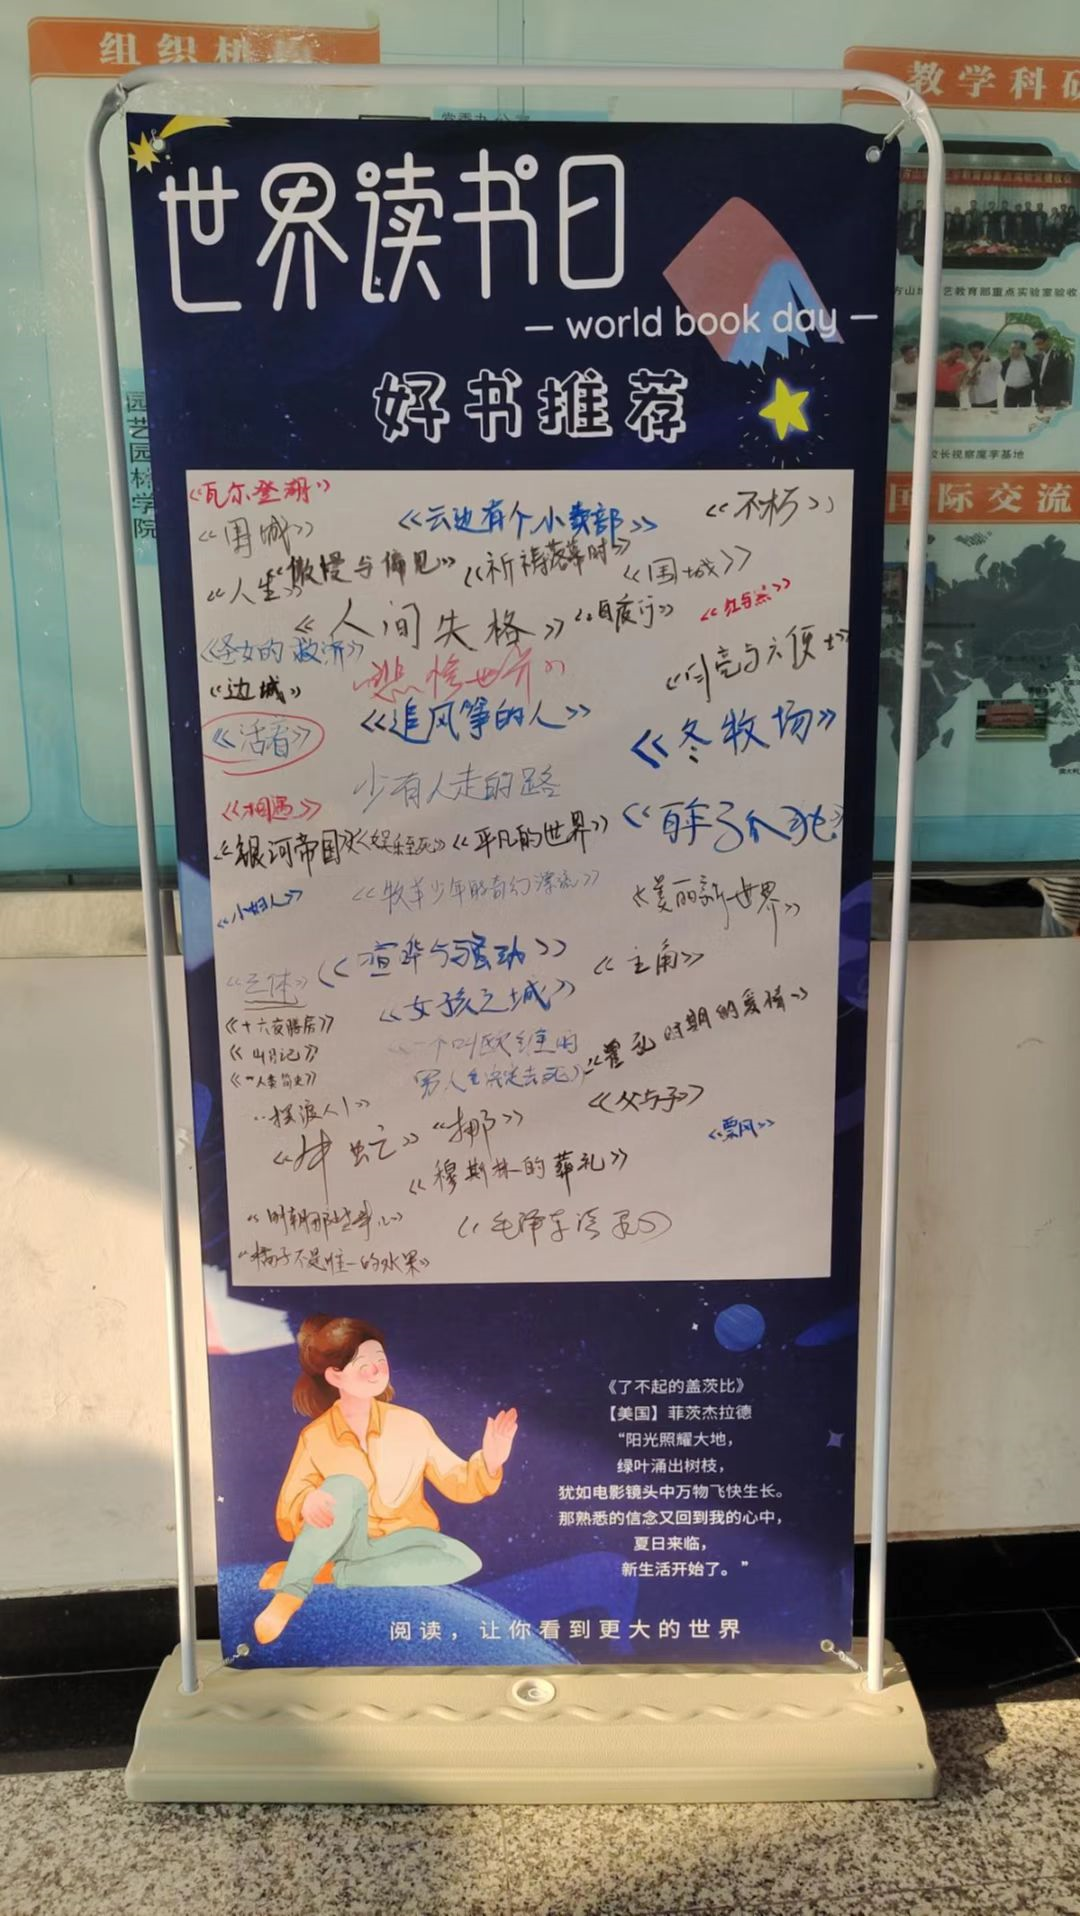 组织机构
教学科研
党委办公室
园艺园林学院
校长视察魔芋基地
国际交流
世界读书日
— world book day —
好书推荐
《瓦尔登湖》
《围城》
《云边有个小卖部》
《不朽》
《人生》
《傲慢与偏见》
《祈祷落幕时》
《围城》
《人间失格》
《白夜行》
《红与黑》
《圣女的救济》
《悲惨世界》
《月亮与六便士》
《边城》
《活着》
《追风筝的人》
《冬牧场》
少有人走的路
《相遇》
《银河帝国》
《娱乐至死》
《平凡的世界》
《百年孤独》
《小妇人》
《牧羊少年的奇幻漂流》
《美丽新世界》
《三体》
《喧哗与骚动》
《主角》
《女孩之城》
《十六夜膳房》
《山月记》
《人类简史》
《一个叫欧维的
男人决定去死》
《霍乱时期的爱情》
《摆渡人1》
《父与子》
《牛虻》
《挪》
《飘风》
《穆斯林的葬礼》
《明朝那些事儿》
《毛泽东语录》
《橘子不是唯一的水果》
《了不起的盖茨比》
【美国】菲茨杰拉德
“阳光照耀大地，
绿叶涌出树枝，
犹如电影镜头中万物飞快生长。
那熟悉的信念又回到我的心中，
夏日来临，
新生活开始了。”
阅读，让你看到更大的世界